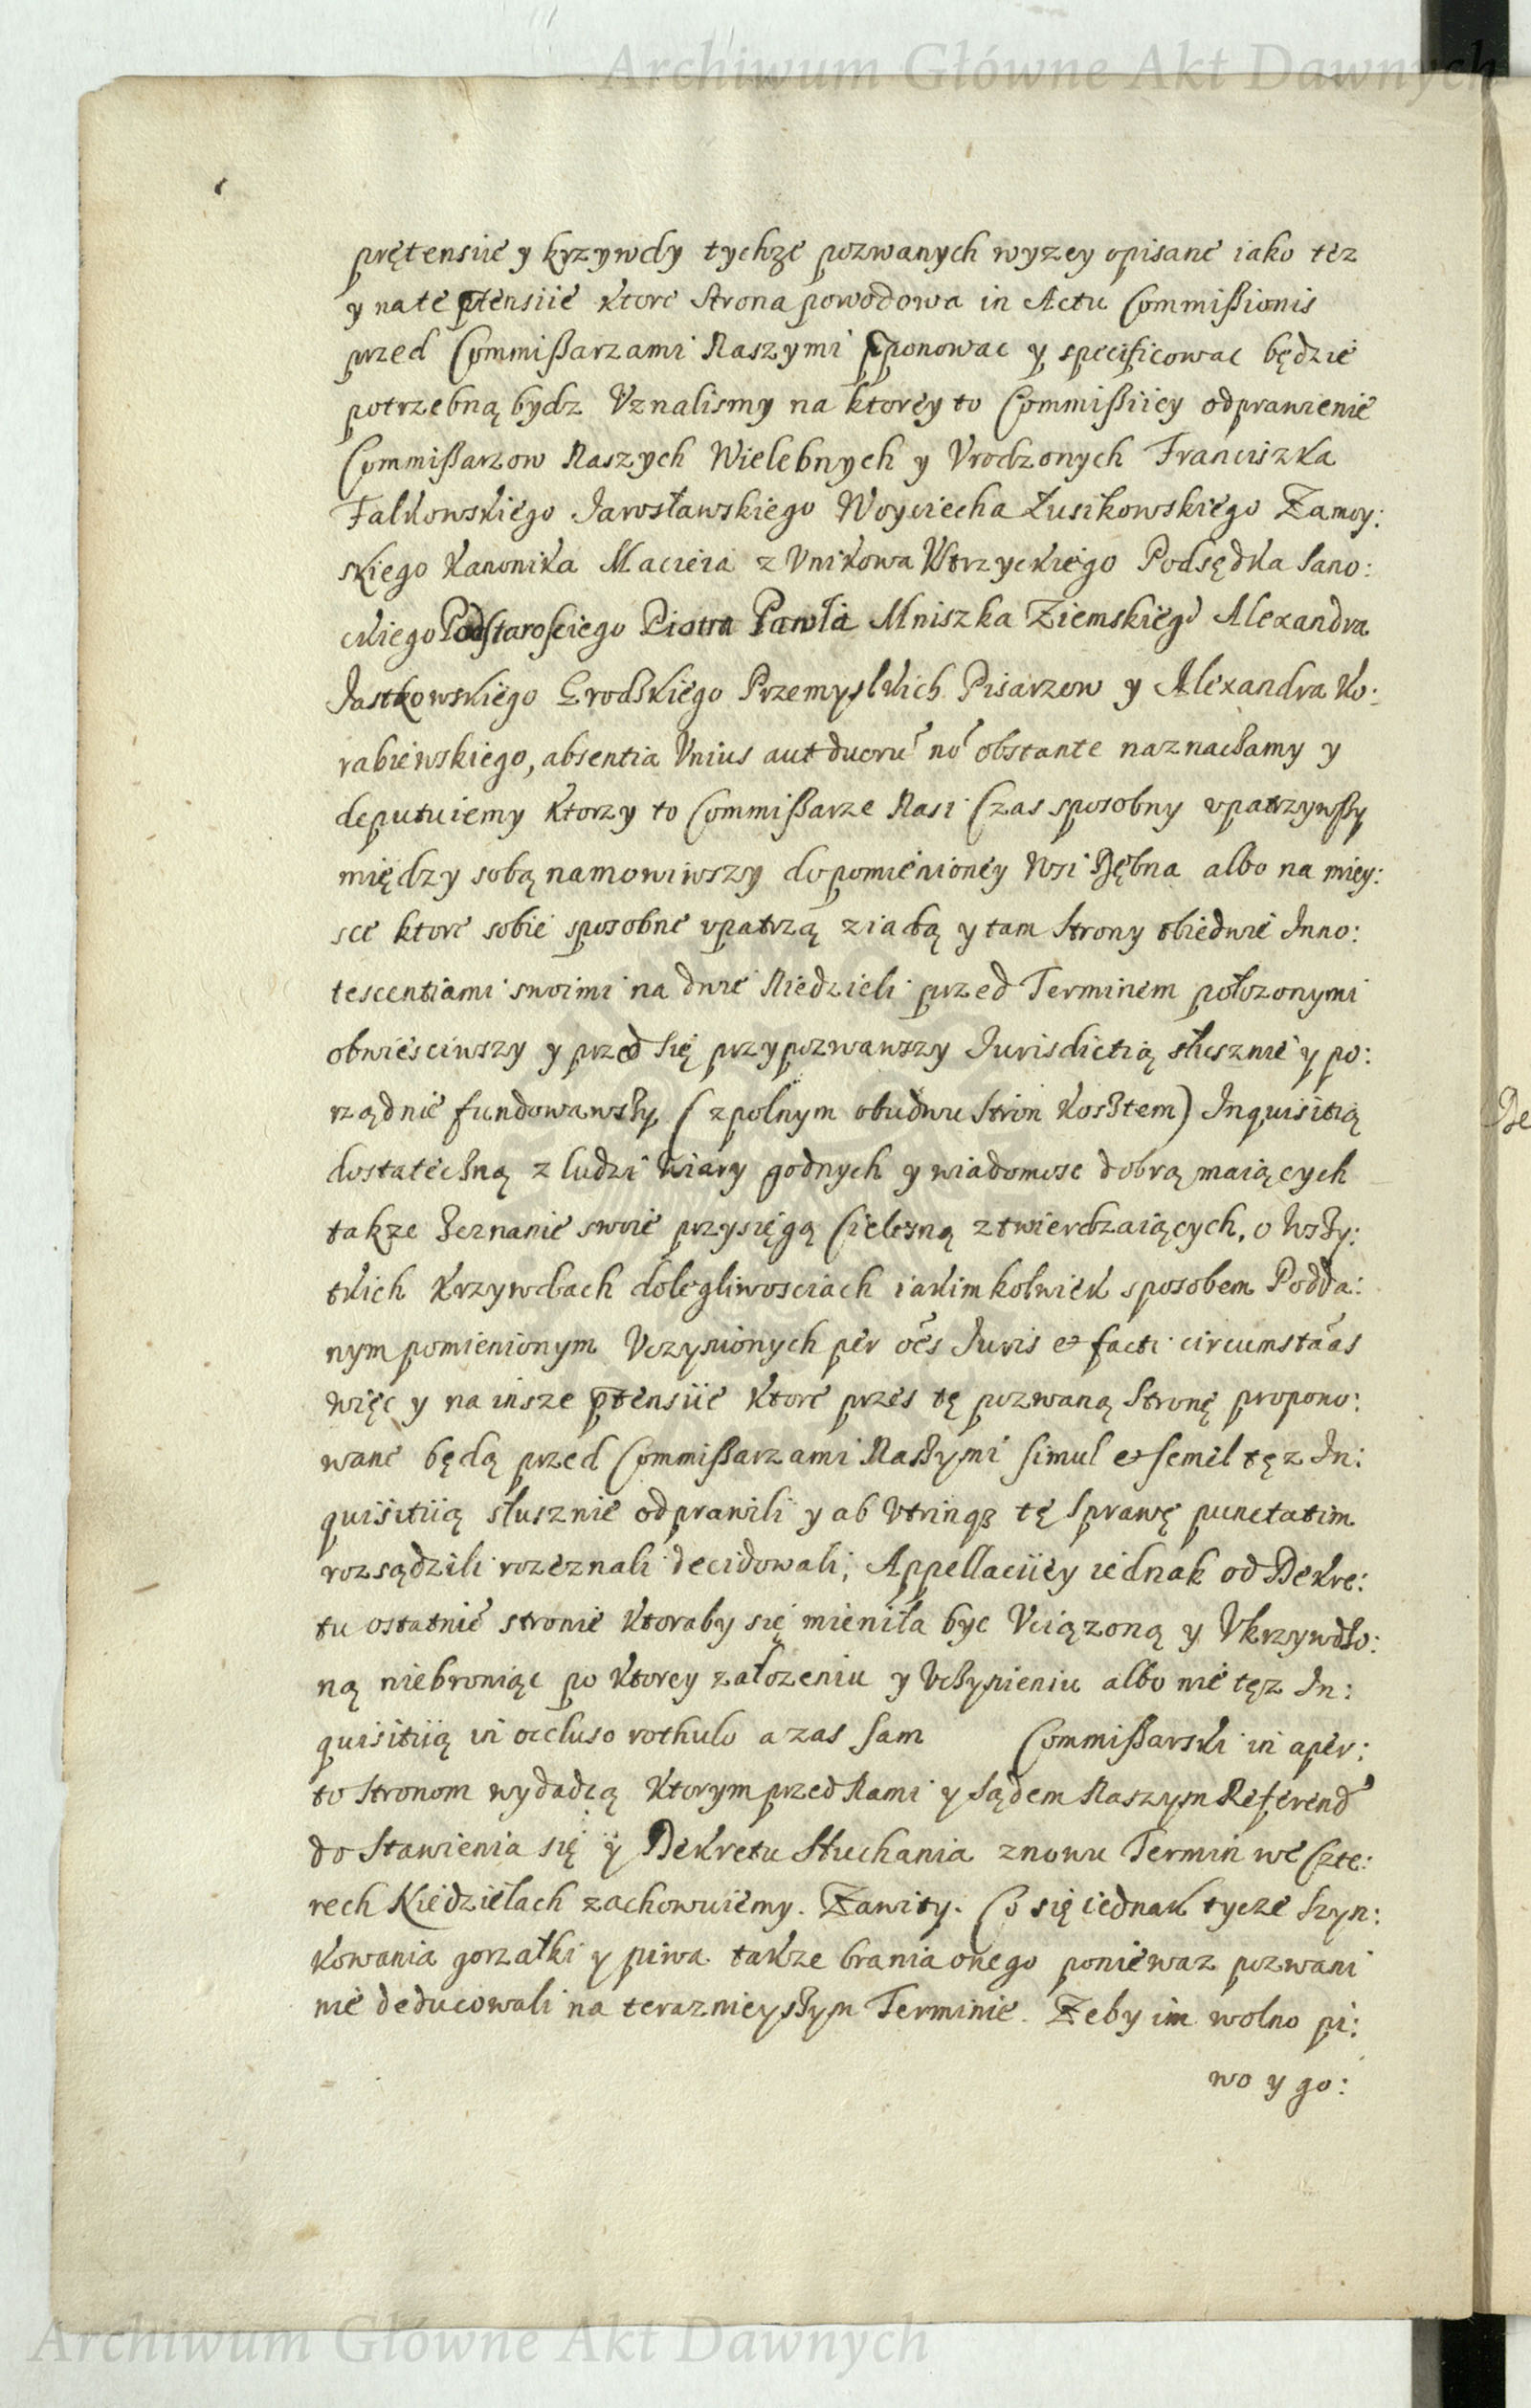 Archiwum Główne Akt Dawnych
prętensiie y krzywdy tychże pozwanych wyzey opisane iako tez
y na te ptensiie ktore Strona powodowa in Actu Commißionis
przed Commißarzami Naszymi pponowac y specificowac będzie
potrzebną bydz Vznalismy na ktorey to Commißiiey odprawienie
Commißarzow Naszych Wielebnych y Vrodzonych Franciszka
Falkowskiego Jarosławskiego Woyciecha Łusikowskiego Zamoy:
skiego Kanonika Macieia z Vnikowa Vstrzyckiego Podsędka Sano:
ckiego Podstarosciego Piotra Pawła Mniszka Ziemskieg° Alexandra
Jastkowskiego Grodskiego Przemyslkich Pisarzow y Alexandra Ko:
rabiewskiego, absentia Vnius aut duorū nō obstante naznacżamy y
deputuiemy ktorzy to Commißarze Nasi Czas sposobny vpatrzywßy
między sobą namowiwszy do pomienioney Wsi Dębna albo na miey:
sce ktore sobie sposobne vpatrzą ziadą y tam Strony obiedwie Inno:
tescentiami swoimi na dwie Niedzieli przed Terminem położonymi
obwiesciwszy y przed się przypozwawszy Jurisdictią słusznie y po:
rządnie fundowawßy (zpolnym obudwu Stron Kosztem) Inquisitią
dostatecżną z ludzi Wiary godnych y wiadomosc dobrą maiących
takze Zeznanie swoie przysięgą Cielesną ztwierdzaiących, o Wßy:
tkich Krzywdach dolegliwosciach iakimkolwiek sposobem Podda:
nym pomienionym Vczynionych per oēs Juris et facti circumstāas
więc y na insze ptensiie ktore przes tę pozwaną Stronę propono:
wane będą przed Commißarzami Naszymi simul et semel tęz In:
quisitiią słusznie odprawili y ab Vtrinqz tę Sprawę punctatim
rozsądzili rozeznali decidowali; Appellaciiey iednak od Dekre:
tu ostatnie stronie ktoraby się mieniła byc Vciązoną y Vkrzywdzo:
ną niebroniąc po ktorey założeniu y Vcżynieniu albo nie tęz In:
quisitiią in occluso rothulo a zas sam Commißarski in aper:
to Stronom wydadzą ktorym przed Nami y Sądem Naszym Referend
do Stawienia się y Dekretu Słuchania znowu Termin we Czte:
rech Niedzielach zachowuiemy. Zawity. Co się iednak tycze Szyn:
kowania gorzałki y piwa takze brania onego poniewaz pozwani
nie deducowali na teraznieyszym Terminie. Zeby im wolno pi:
wo y go:
De
Archiwum Główne Akt Dawnych